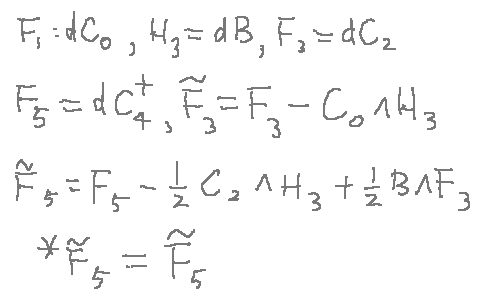 F₁ = dC₀, H₃ = dB, F₃ = dC₂
F₅ = dC₄⁺, F̃₃ = F₃ − C₀ ∧ H₃
F̃₅ = F₅ − ½ C₂ ∧ H₃ + ½ B ∧ F₃
*F̃₅ = F̃₅